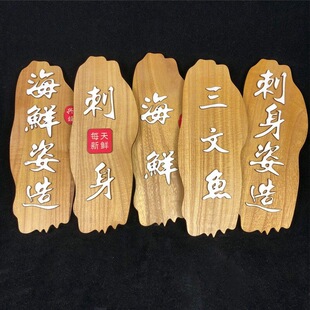 海鮮姿造
刺身
每天
新鮮
海鮮
三文魚
刺身姿造